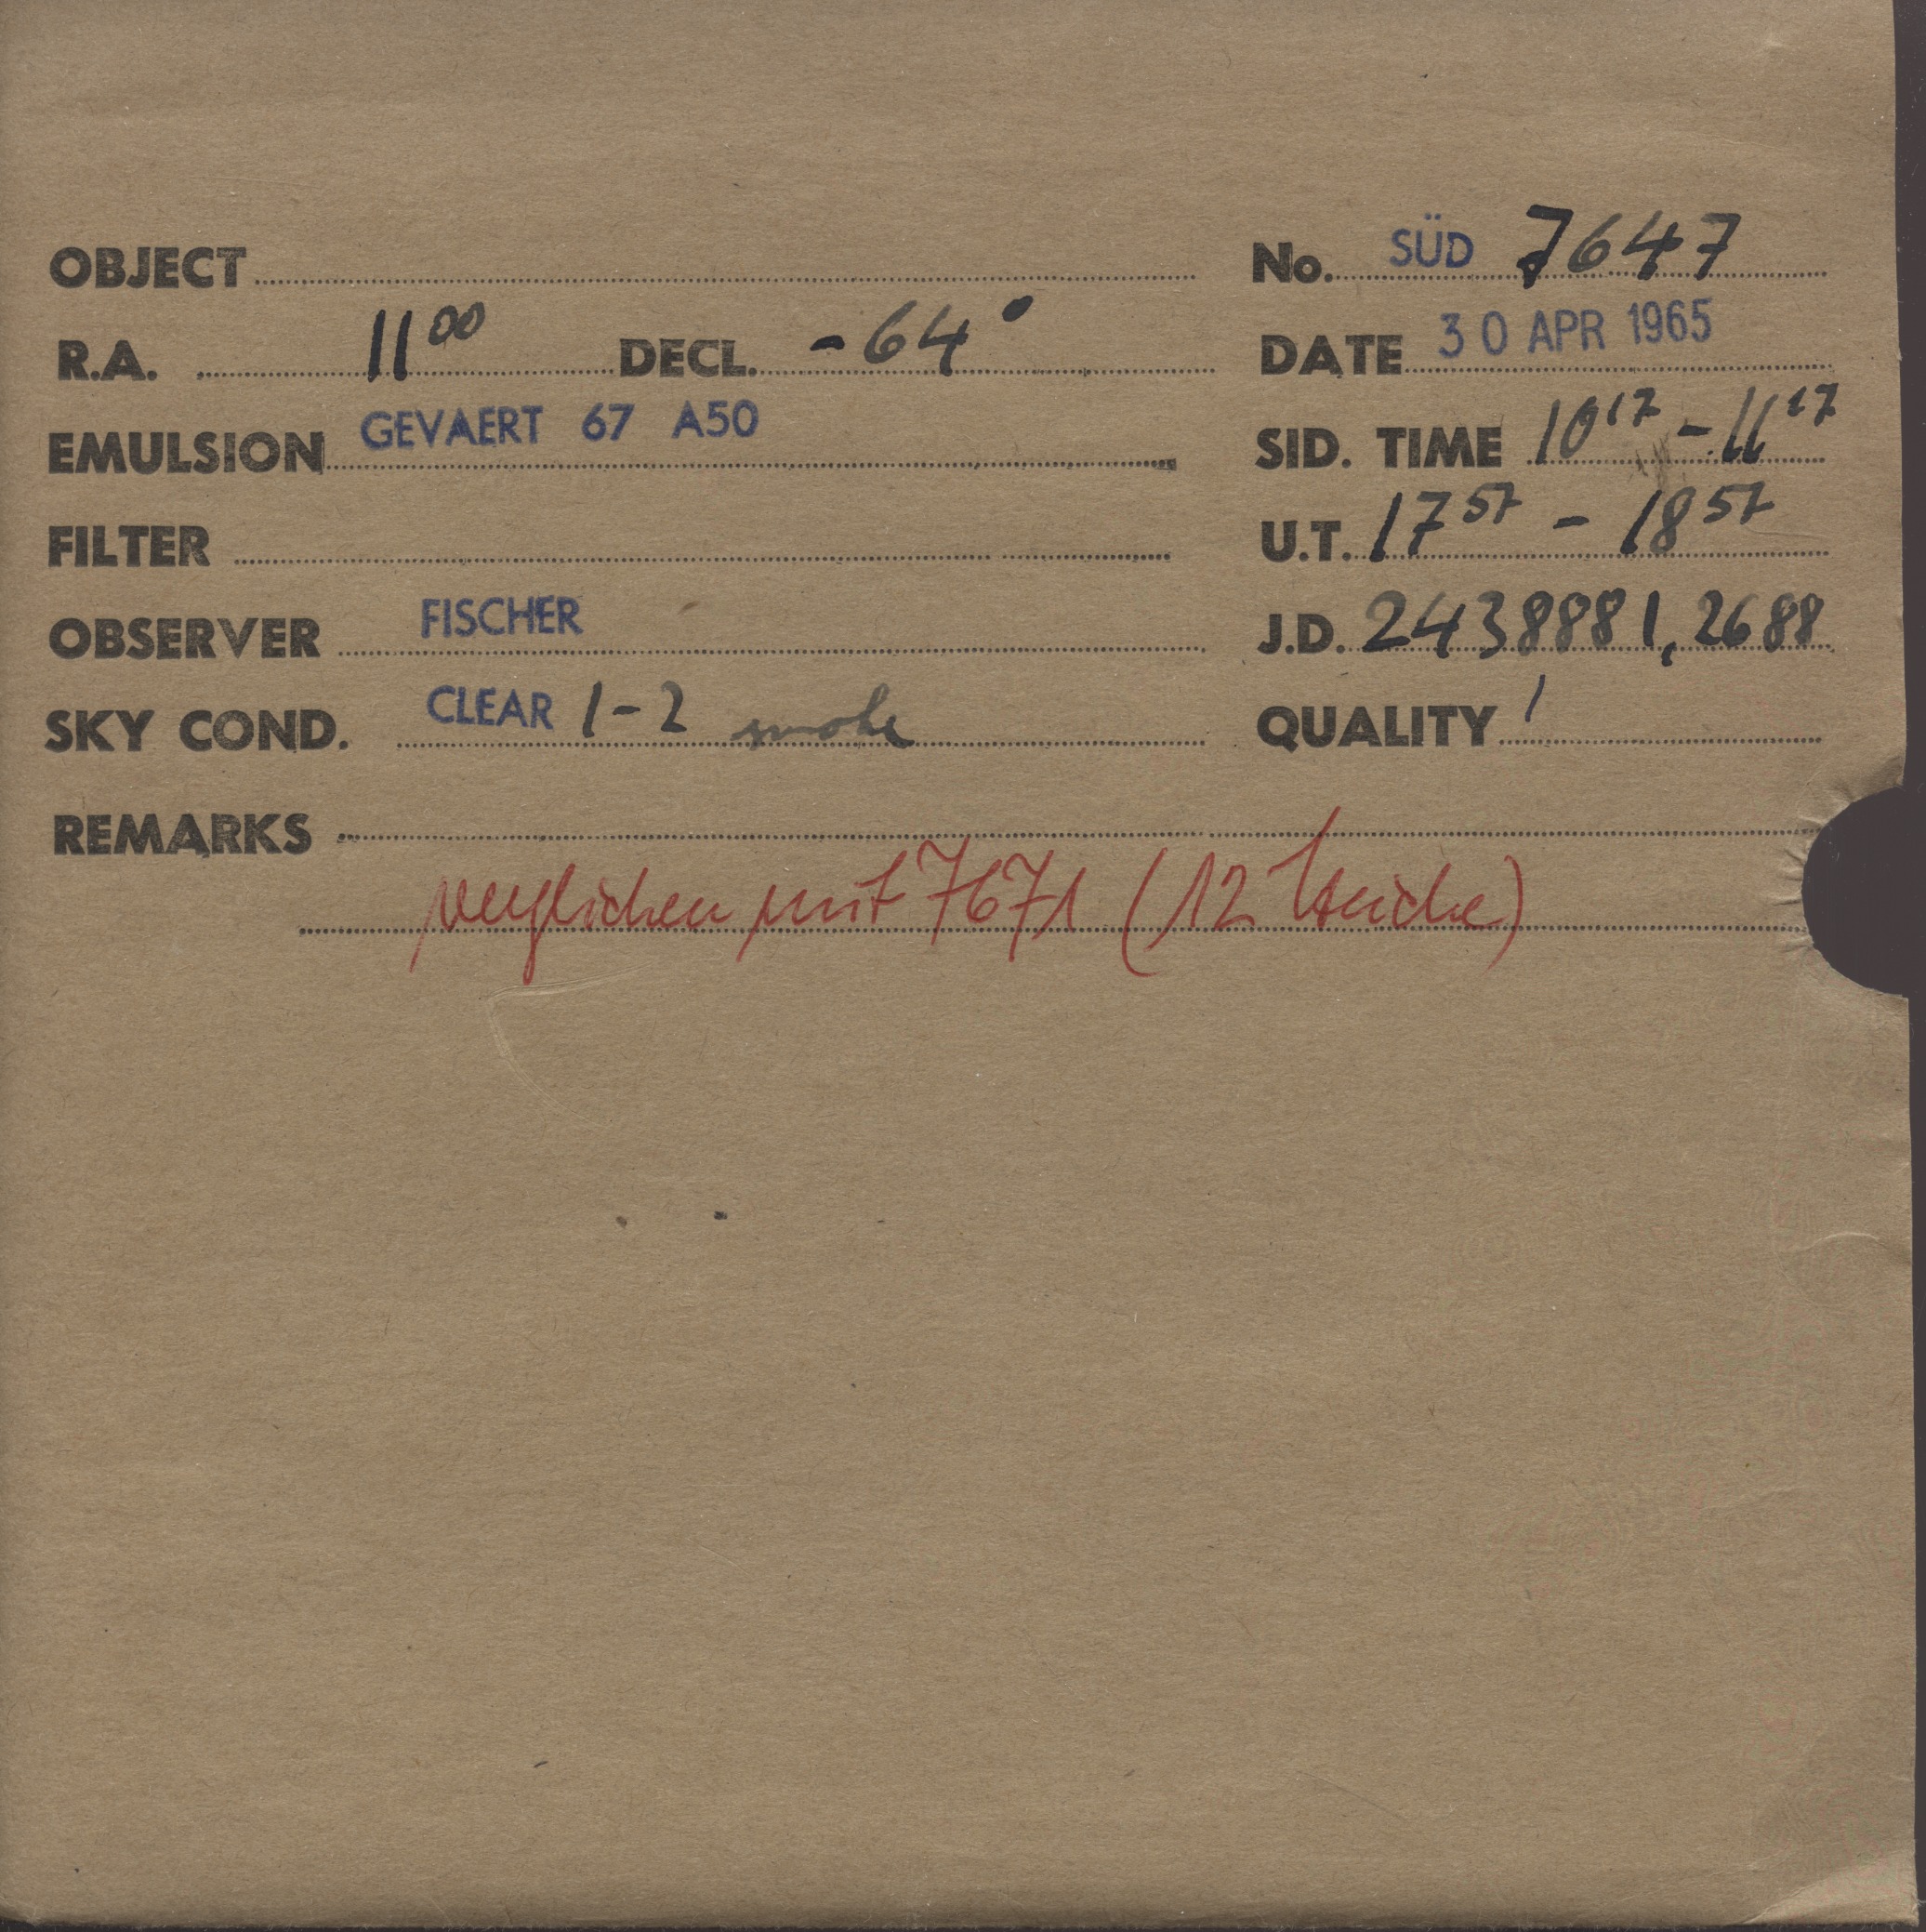 OBJECT No. SÜD 7647
R.A. 11⁰⁰ DECL. -64° DATE 30 APR 1965
EMULSION GEVAERT 67 A50 SID. TIME 10¹⁷ - 11¹⁷
FILTER U.T. 17⁵⁷ - 18⁵⁷
OBSERVER FISCHER J.D. 2438881,2688
SKY COND. CLEAR 1-2 smoke QUALITY 1
REMARKS
verglichen mit 7671 (12